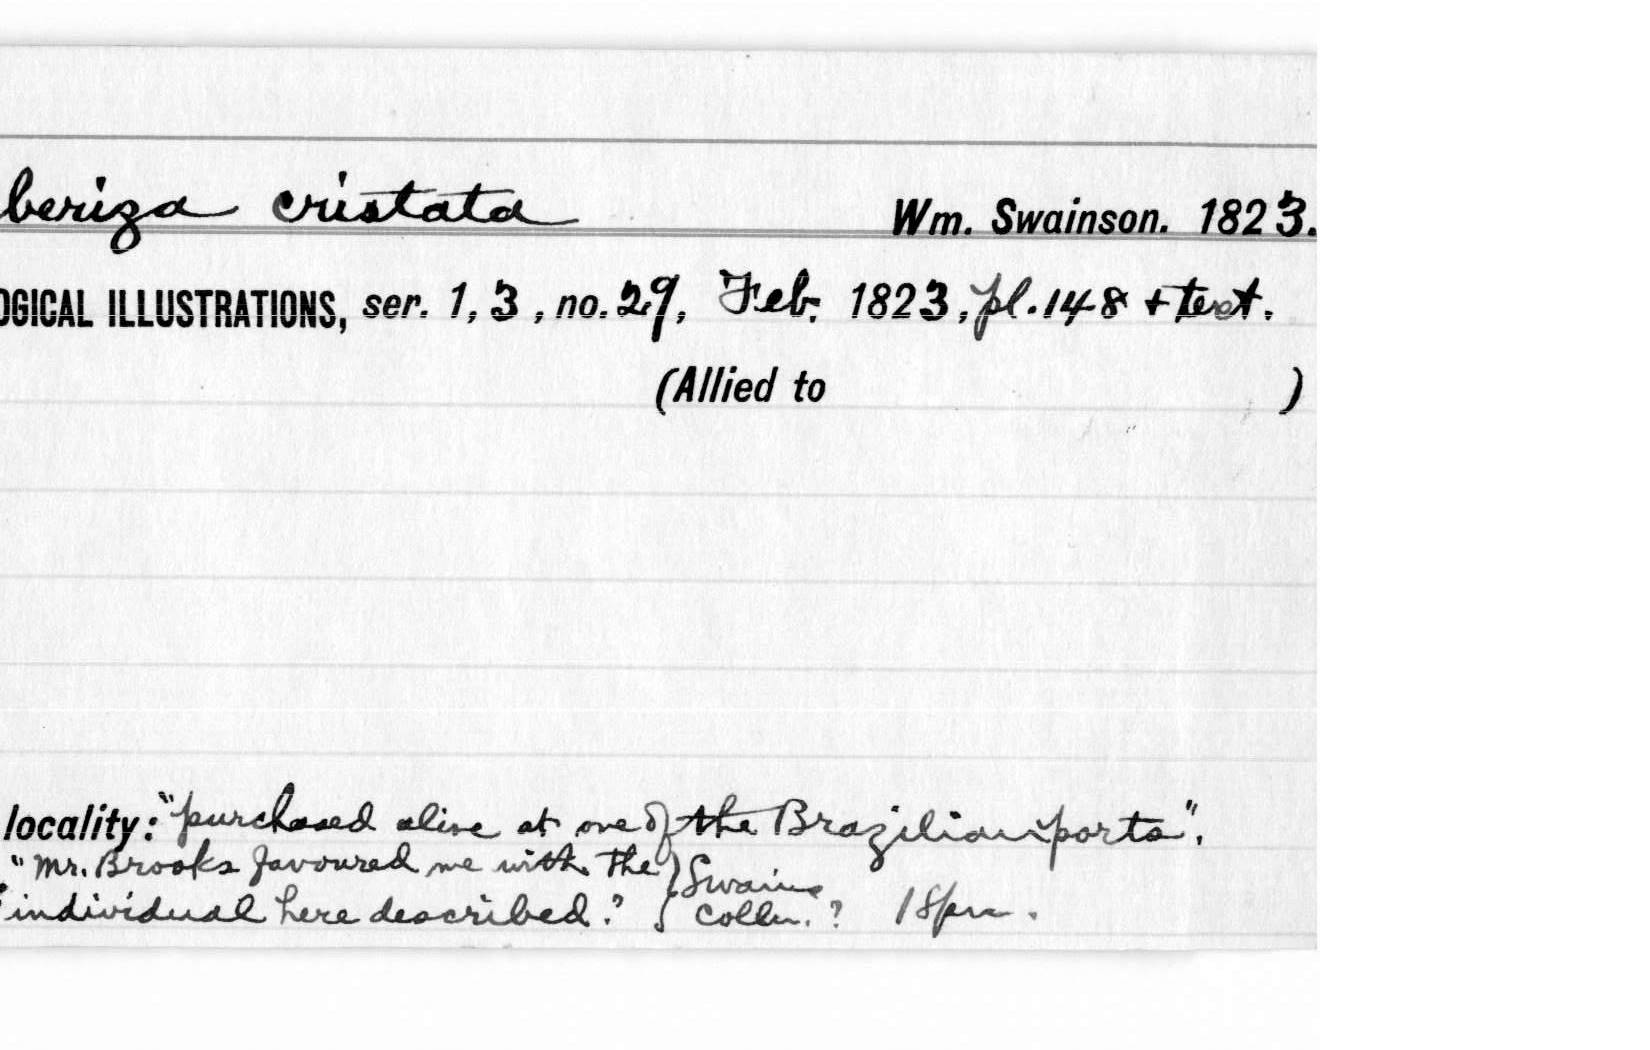 beriza cristata Wm. Swainson. 1823.
OGICAL ILLUSTRATIONS, ser. 1, 3, no. 29, Feb. 1823, pl. 148 + text.
(Allied to )
locality: "purchased alive at one of the Brazilian ports".
"Mr. Brooks favoured me with the } Swains
individual here described." } Colln. ? 1 spm.